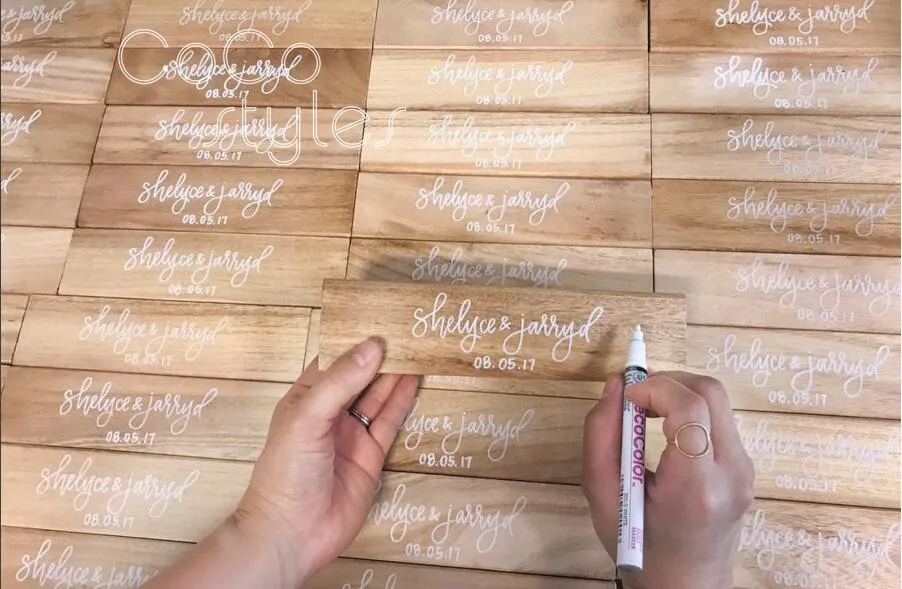 shelyce & jarryd
08.05.17
shelyce & jarryd
08.05.17
shelyce & jarryd
08.05.17
CoCo
styles
shelyce & jarryd
08.05.17
shelyce & jarryd
08.05.17
shelyce & jarryd
08.05.17
shelyce & jarryd
08.05.17
shelyce & jarryd
08.05.17
shelyce & jarryd
08.05.17
shelyce & jarryd
08.05.17
shelyce & jarryd
08.05.17
shelyce & jarryd
08.05.17
shelyce & jarryd
08.05.17
shelyce & jarryd
shelyce & jarryd
08.05.17
shelyce & jarryd
08.05.17
shelyce & jarryd
08.05.17
shelyce & jarryd
08.05.17
shelyce & jarryd
08.05.17
& jarryd
08.05.17
shelyce & jarryd
08.05.17
shelyce & jarryd
08.05.17
shelyce & jarryd
ecocolor